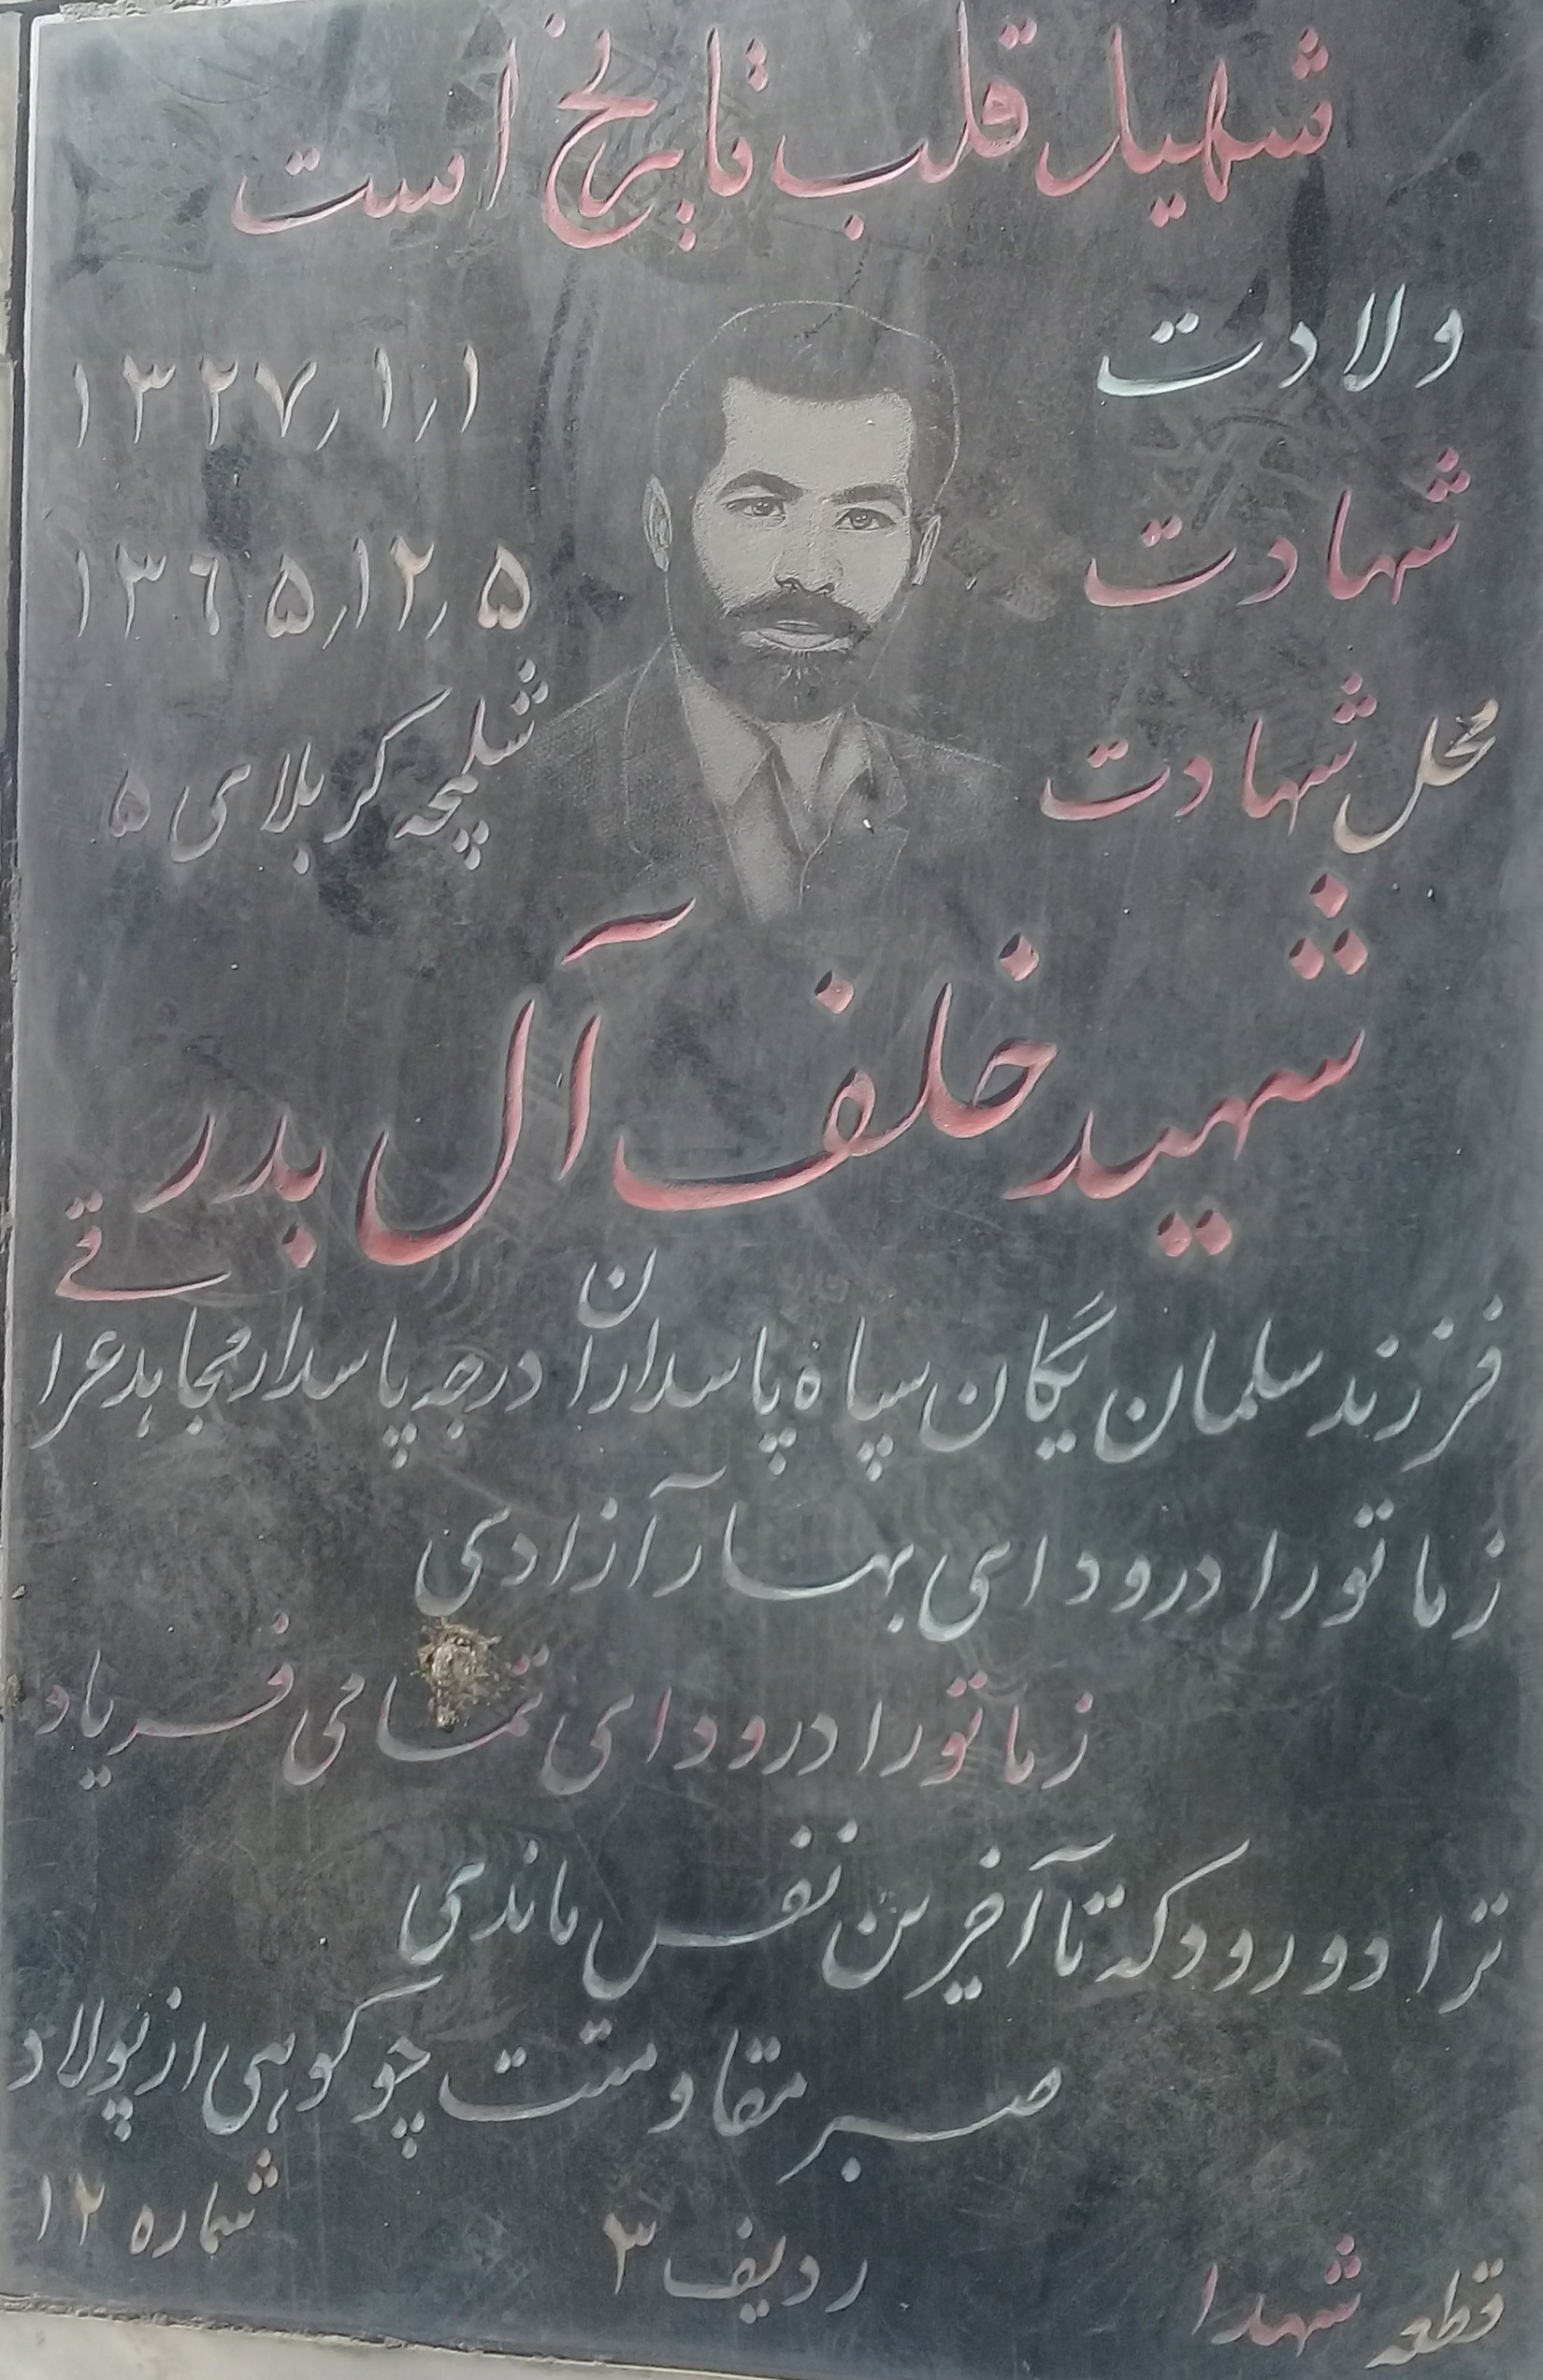 شهید قلب تاریخ است
ولادت ۱۳۲۷/۱/۱
شهادت ۱۳۶۵/۱۲/۵
محل شهادت شلمچه کربلای ۵
شهید خلف آل بدر
فرزند سلمان یگان سپاه پاسداران درجه پاسدار مجاهد عراقی
ز ما تو را درود ای بهار آزادی
ز ما تو را درود ای تمامی فریاد
ترا دو رود که تا آخرین نفس ماندی
صبر مقاومتت چو کوهی از پولاد
قطعه شهدا ردیف ۳ شماره ۱۲